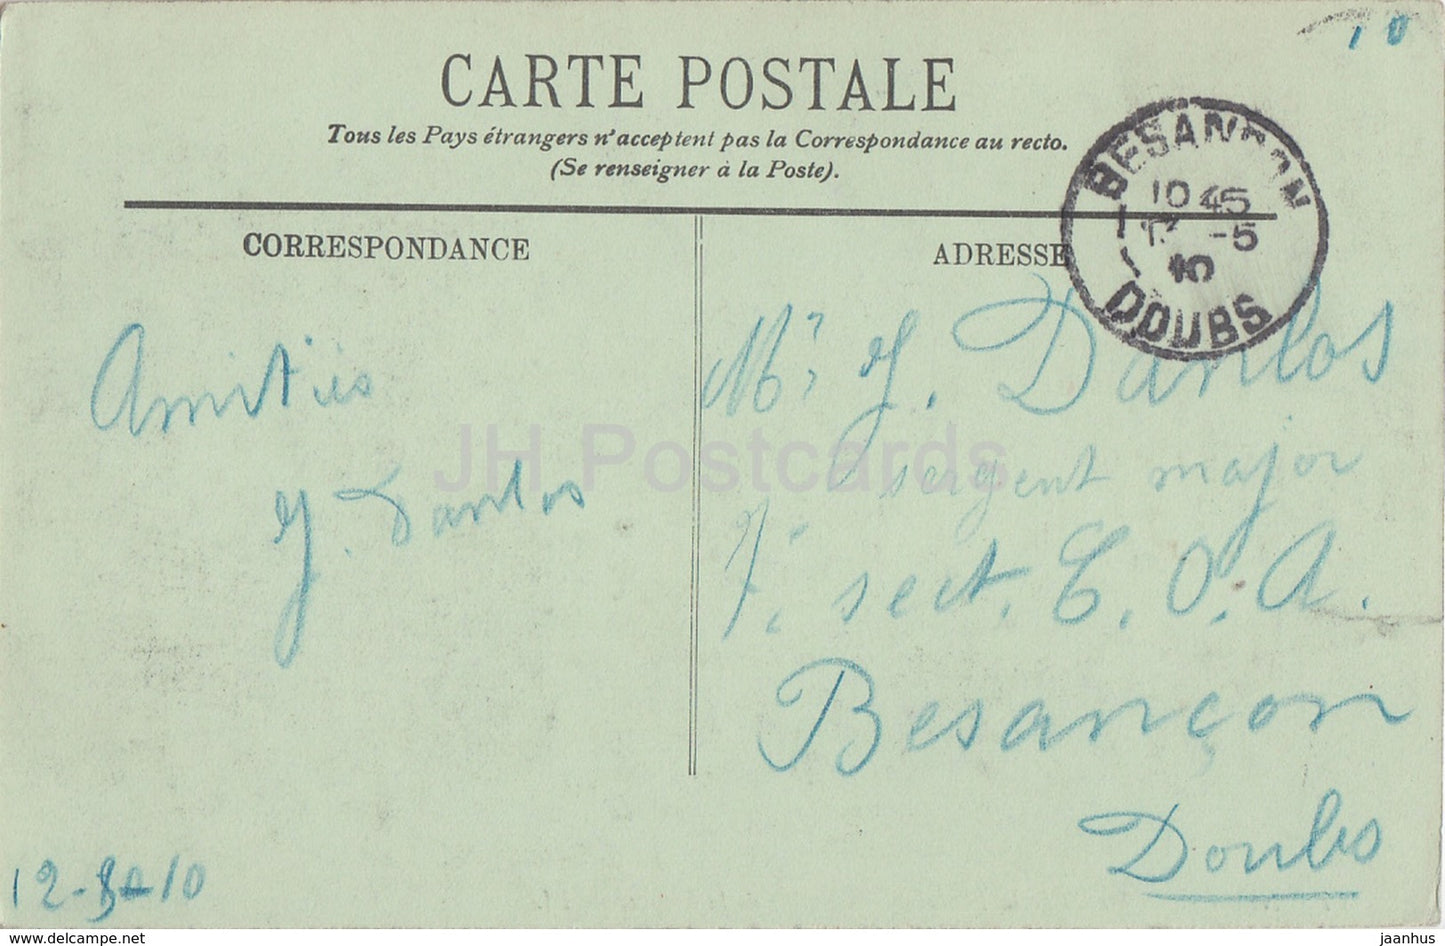 10
CARTE POSTALE
Tous les Pays étrangers n'acceptent pas la Correspondance au recto.
(Se renseigner à la Poste).
BESANCON
10 45
-5
10
DOUBS
CORRESPONDANCE
ADRESSE
Amitiés
J. Danlos
Mr J. Danlos
sergent major
7e sect. C. O. A.
Besançon
Doubs
12-5-10
JH Postcards
www.delcampe.net
jaanhus